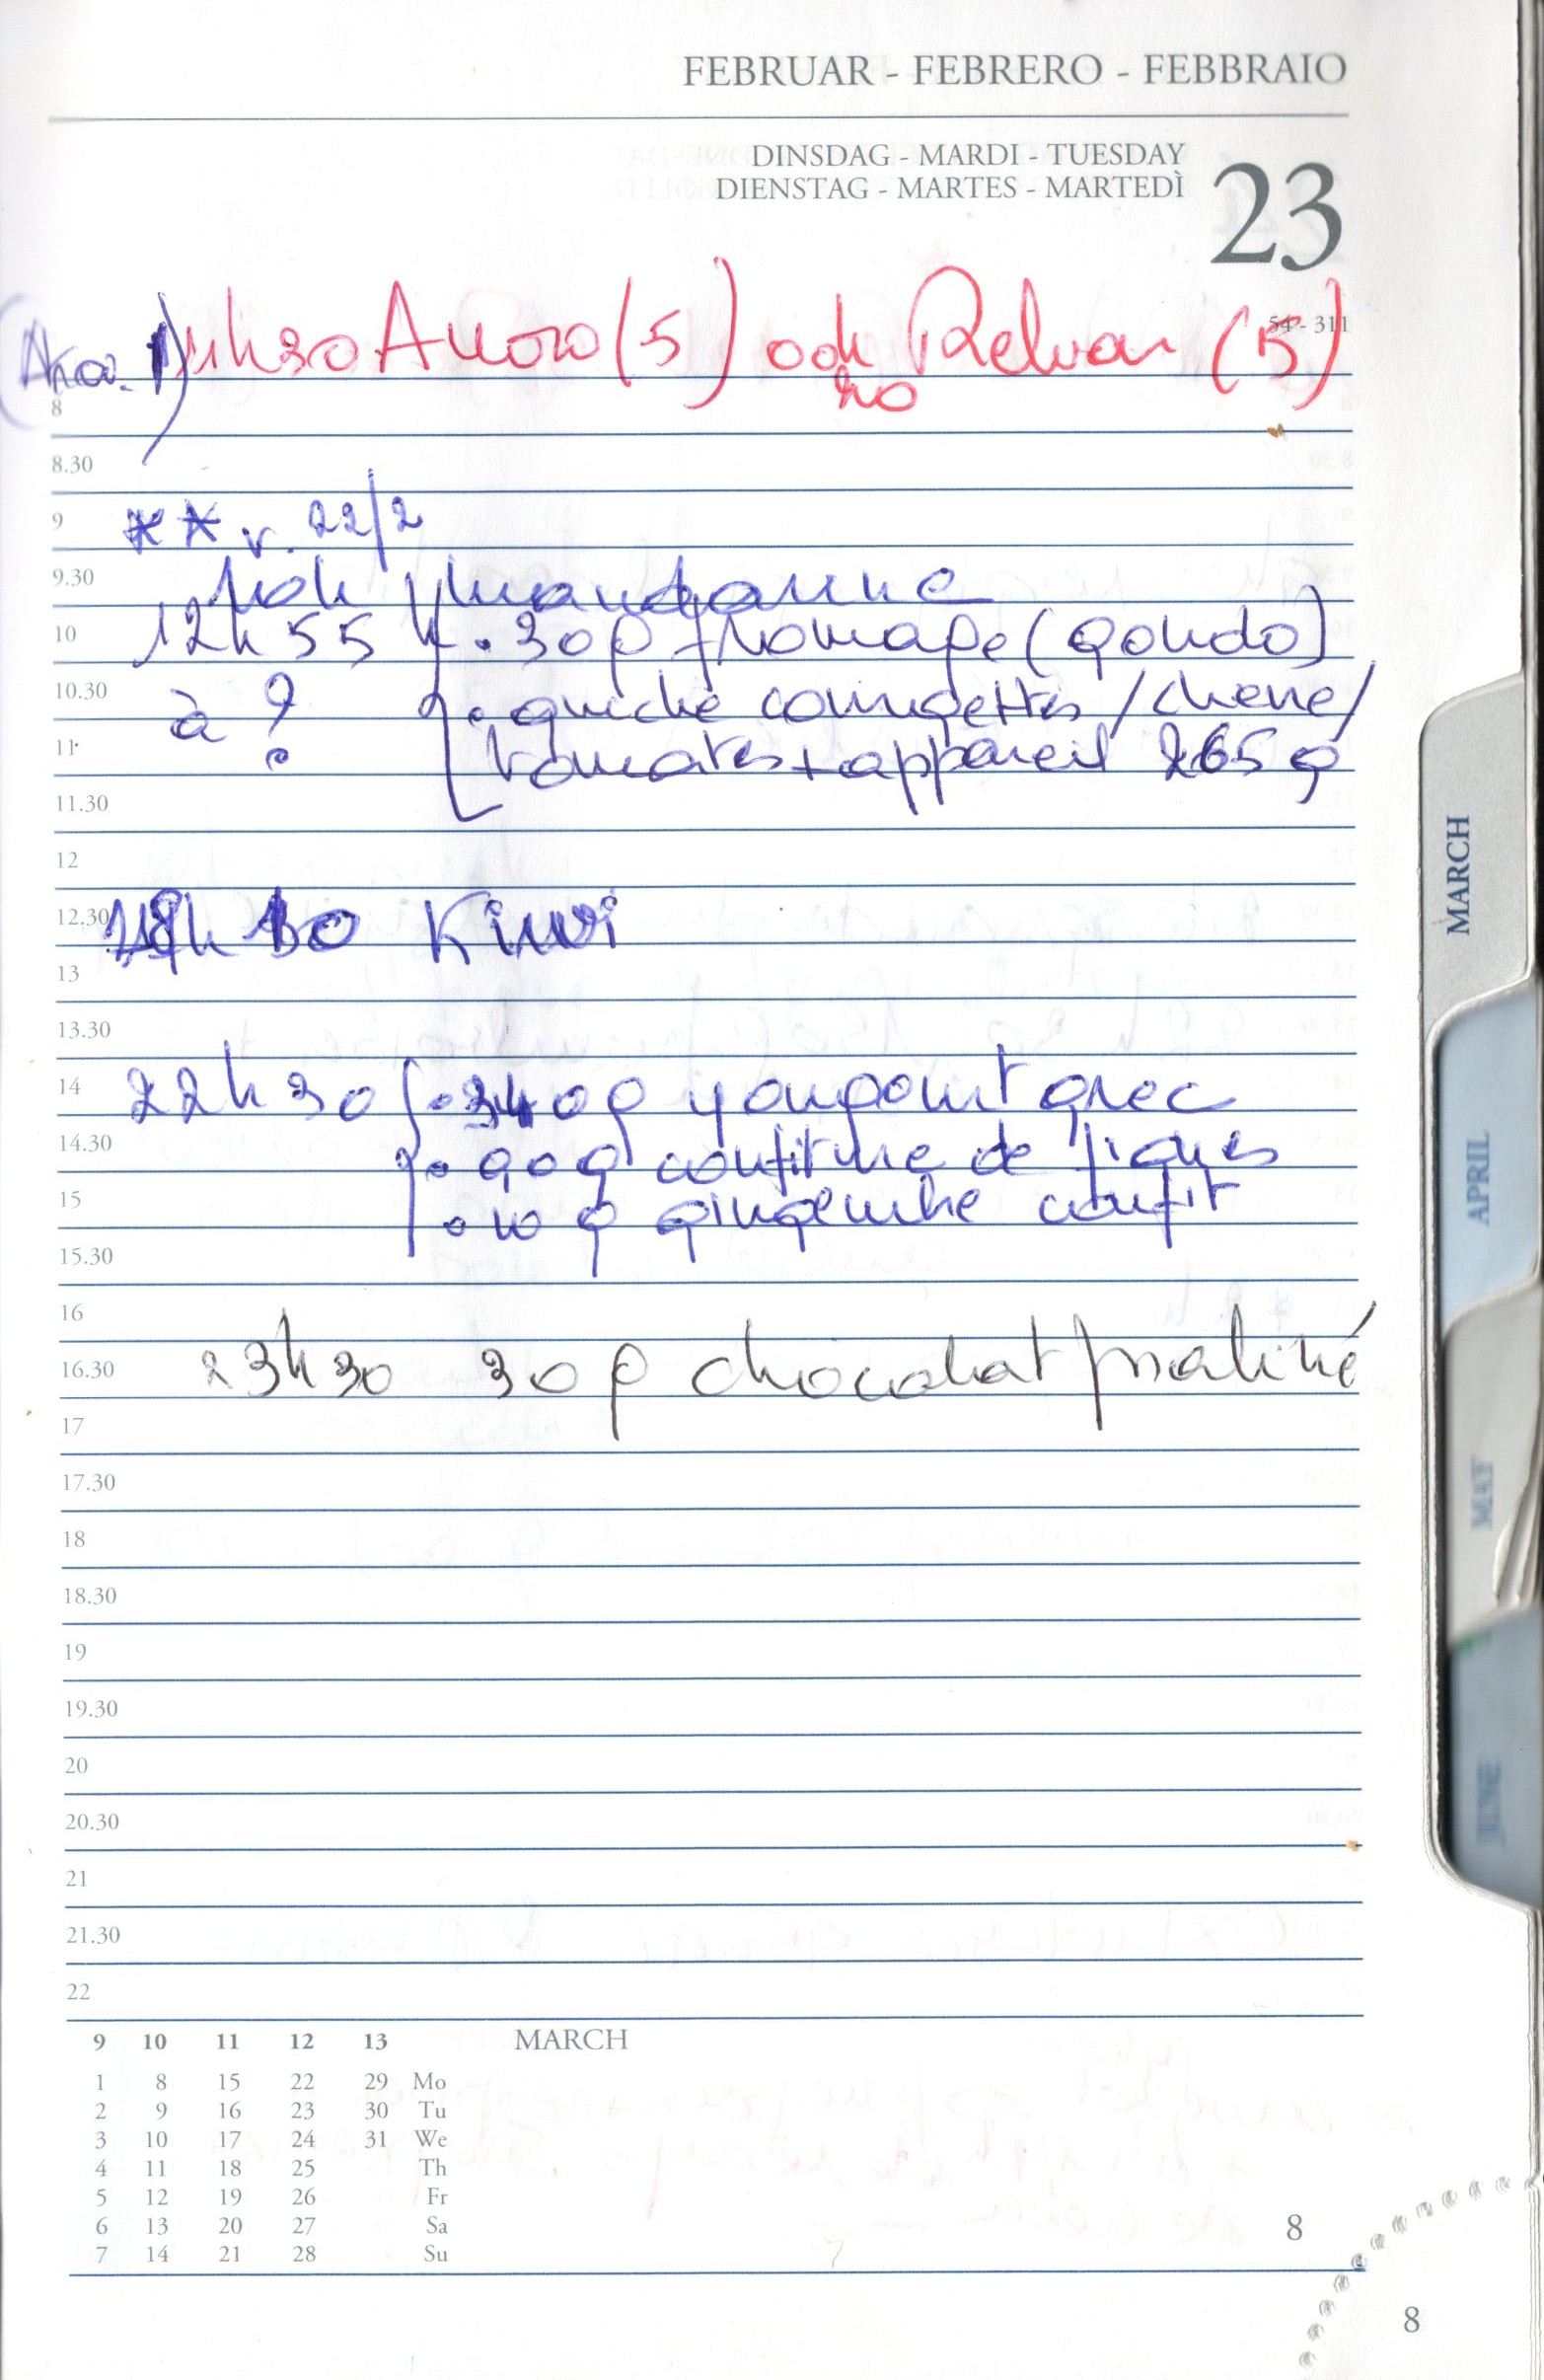 FEBRUAR - FEBRERO - FEBBRAIO
DINSDAG - MARDI - TUESDAY
DIENSTAG - MARTES - MARTEDÌ
23
54 - 311
(5) (5)
8
8.30
9 ** v. 22/2
9.30 mandarine
10 12h55 . 30g fromage (gouda)
10.30 à ? . quiche courgettes / chèvre /
11 tomates + appareil 265 g
11.30
12
12.30 18h Kiwi
13
13.30
14 22h30 . 340g yougourt grec
14.30 . 90g confiture de figues
15 . 10 g gingembre confit
15.30
16
16.30 23h30 30g chocolat praliné
17
17.30
18
18.30
19
19.30
20
20.30
21
21.30
22
9 10 11 12 13 MARCH
1 8 15 22 29 Mo
2 9 16 23 30 Tu
3 10 17 24 31 We
4 11 18 25 Th
5 12 19 26 Fr
6 13 20 27 Sa
7 14 21 28 Su
8
8
MARCH
APRIL
MAY
JUNE